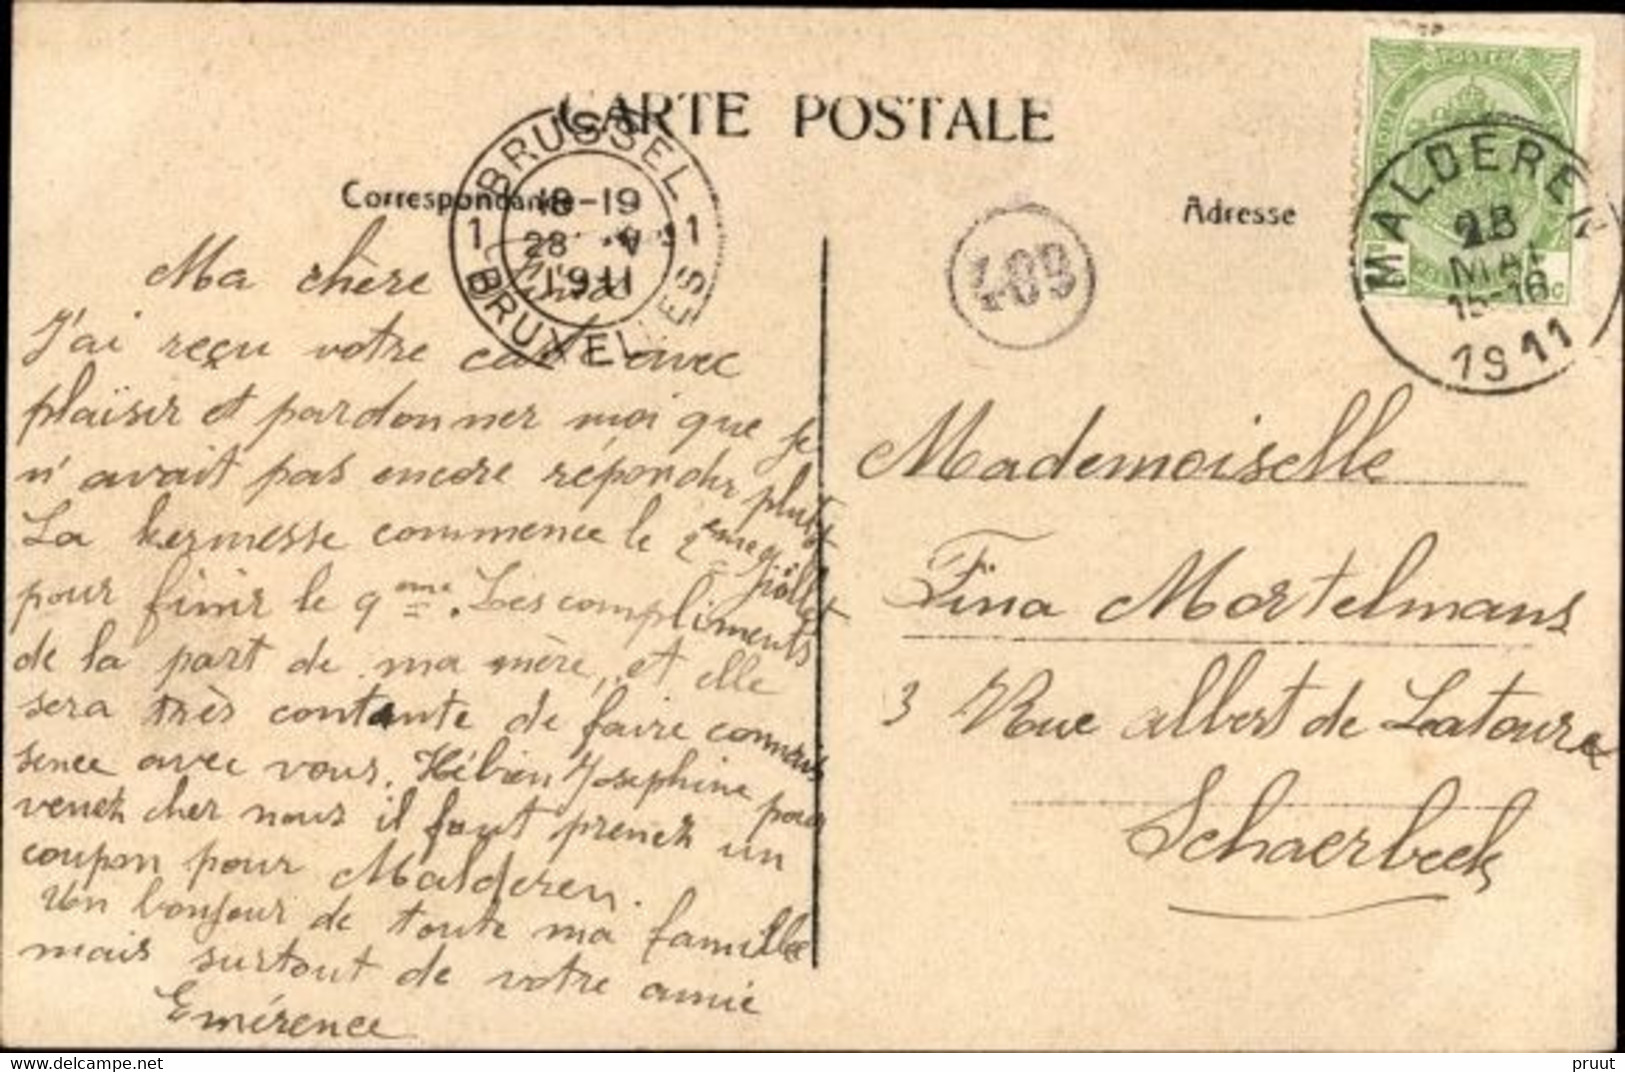 CARTE POSTALE
Correspondance
Adresse
BRUSSEL
1 18-19 1
28 V
1911
BRUXELLES
409
MALDEREN
28
MAI
15-16
1911
Ma chère
J'ai reçu votre carte avec
plaisir et pardonner moi que je
n'avait pas encore répondre plutôt
La kermesse commence le 2eme juillet
pour finir le 9me. Les compliments
de la part de ma mère, et elle
sera très contante de faire connais
sence avec vous. Hébien Josephine pour
venez cher nous il faut prenez un
coupon pour Malderen.
Un bonjour de toute ma famillee
mais surtout de votre amie
Emérence
Mademoiselle
Fina Mortelmans
3 Rue Albert de Latoure
Schaerbeek
delcampe.net
pruut